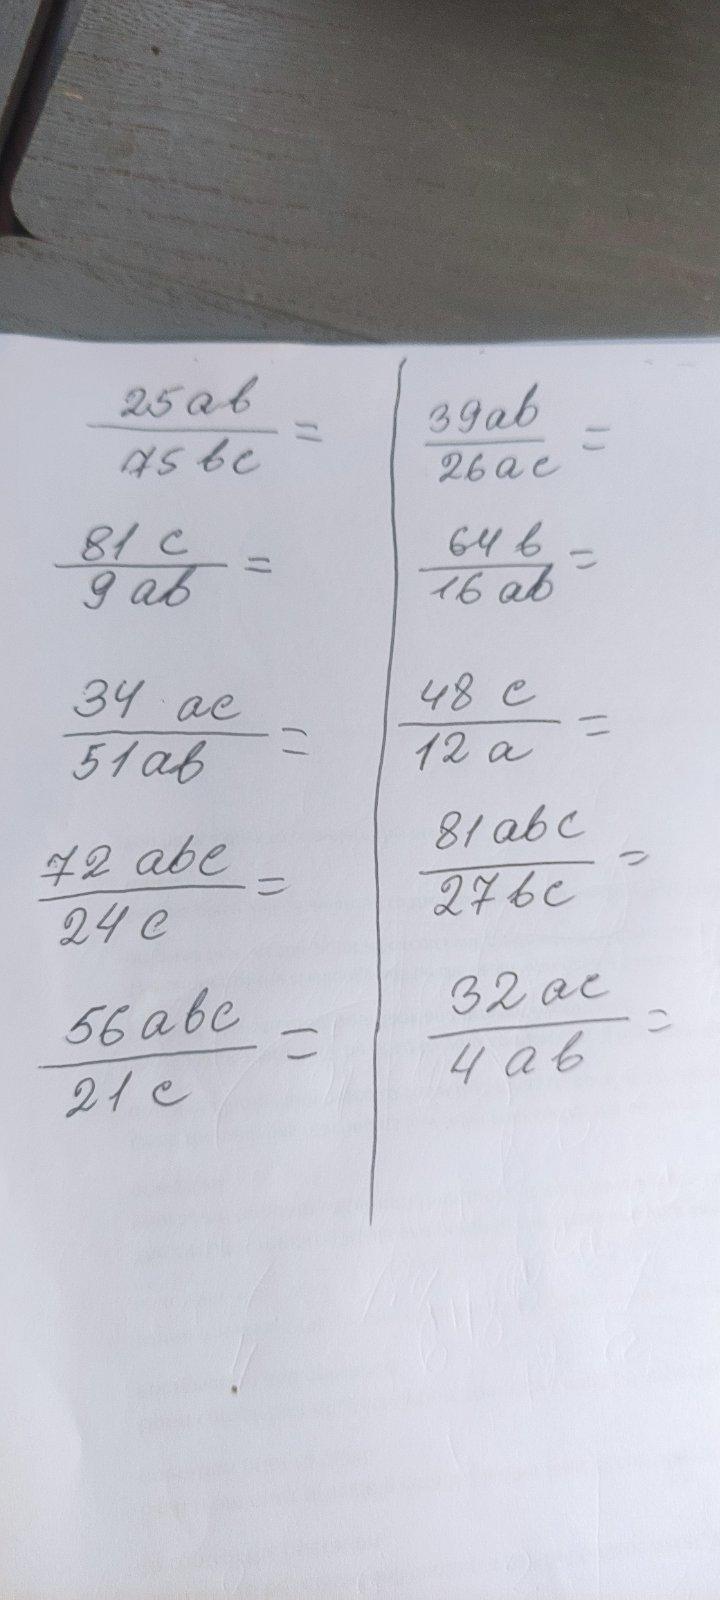 25ab
75bc =
81 c
9 ab =
34 ac
51ab =
72 abc
24 c =
56abc
21 c =
39ab
26ac =
64 b
16 ab =
48 c
12 a =
81abc
27bc =
32 ac
4 ab =